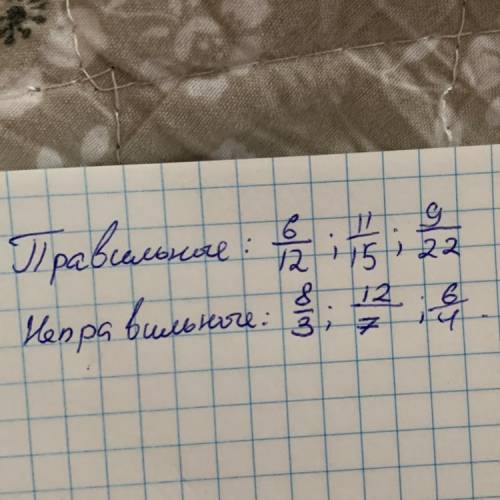 Правильные: 6/12; 11/15; 9/22
Неправильные: 8/3; 12/7; 6/4.